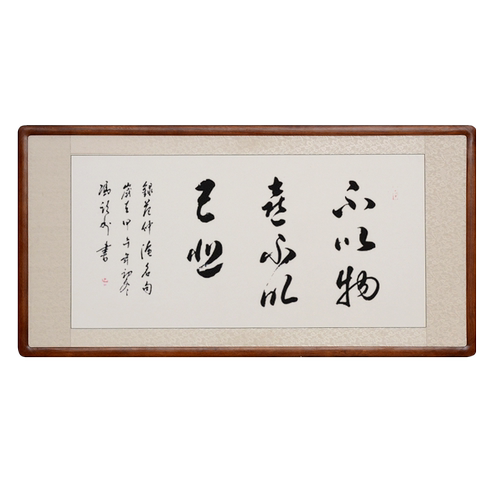 不以物
喜不以
己悲
録范仲淹名句
歲在甲午年初冬
書